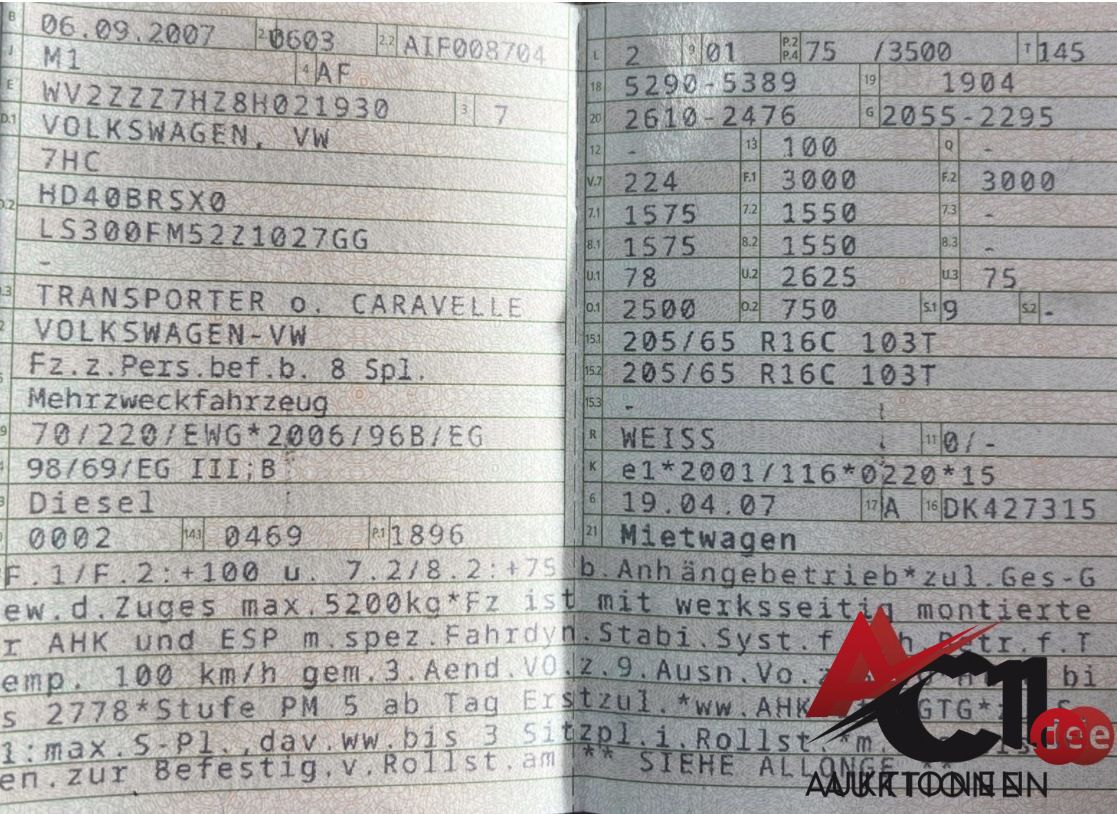 B 06.09.2007 2.1 0603 2.2 AIF008704
J M1 4 AF
E WV2ZZZ7HZ8H021930 3 7
D.1 VOLKSWAGEN, VW
7HC
D.2 HD40BRSX0
LS300FM52Z1027GG
-
D.3 TRANSPORTER o. CARAVELLE
2 VOLKSWAGEN-VW
5 Fz.z.Pers.bef.b. 8 Spl.
Mehrzweckfahrzeug
9 70/220/EWG*2006/96B/EG
98/69/EG III;B
3 Diesel
0002 14.1 0469 P.1 1896
L 2 9 01 P.2 P.4 75 /3500 T 145
18 5290-5389 19 1904
20 2610-2476 G 2055-2295
12 - 13 100 Q -
V.7 224 F.1 3000 F.2 3000
7.1 1575 7.2 1550 7.3 -
8.1 1575 8.2 1550 8.3 -
U.1 78 U.2 2625 U.3 75
O.1 2500 O.2 750 S.1 9 S.2 -
15.1 205/65 R16C 103T
15.2 205/65 R16C 103T
15.3 -
R WEISS 11 0/-
K e1*2001/116*0220*15
6 19.04.07 17 A 16 DK427315
21 Mietwagen
F.1/F.2:+100 u. 7.2/8.2:+75 b.Anhängebetrieb*zul.Ges-G
ew.d.Zuges max.5200kg*Fz ist mit werksseitig montierte
r AHK und ESP m.spez.Fahrdyn.Stabi.Syst.f. Betr.f.T
emp. 100 km/h gem.3.Aend.VO.z.9.Ausn.Vo. bi
s 2778*Stufe PM 5 ab Tag Erstzul.*ww.AHK GTG* S.
1:max.S-Pl.,dav.ww.bis 3 Sitzpl.i.Rollst.*m.
en.zur Befestig.v.Rollst.am ** SIEHE ALLONGE **
AC11.ee
AUKTIONEN